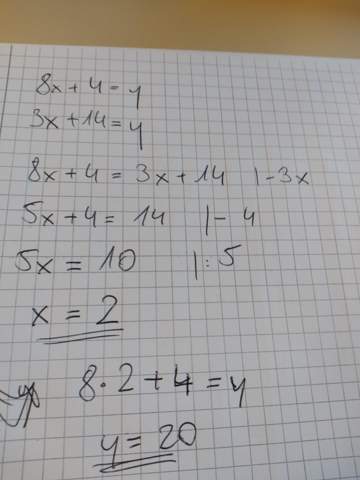 8x + 4 = y
3x + 14 = y
8x + 4 = 3x + 14 | - 3x
5x + 4 = 14 | - 4
5x = 10 | : 5
x = 2
8 · 2 + 4 = y
y = 20